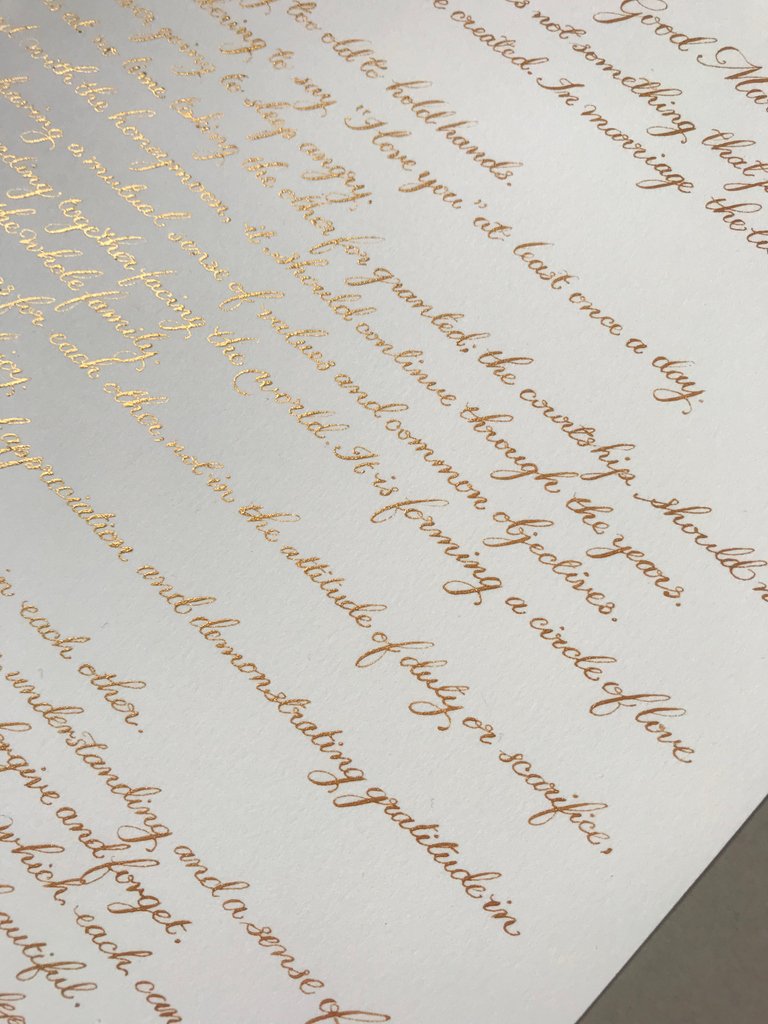 Good
not something that
created. In marriage the
too old to hold hands.
to say "I love you" at least once a day.
going to sleep angry.
at no time taking the other for granted; the courtship should
with the honeymoon, it should continue through the years.
having a mutual sense of values and common objectives.
together facing the world. It is forming a circle of love
the whole family.
for each other, not in the attitude of duty or scarifice,
joy.
appriciation and demonstrating gratitude in
in each other.
understanding and a sense of
and forget.
which each can